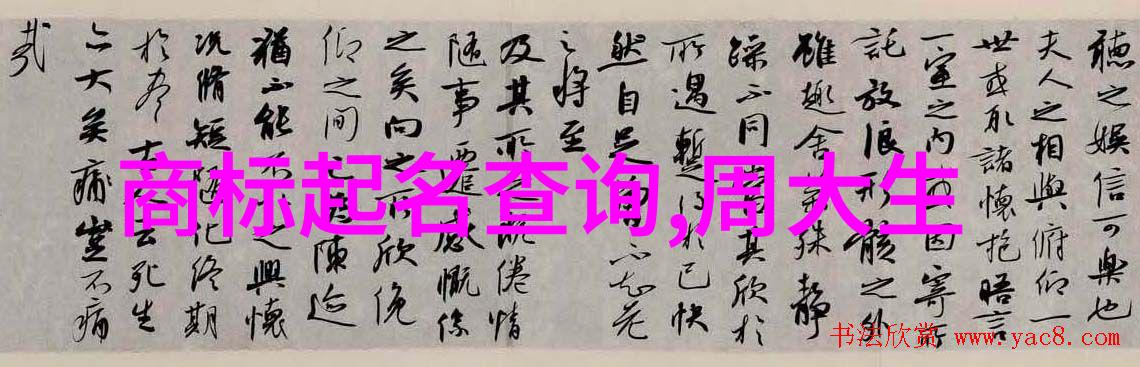 聽之娛信可樂也
夫人之相與俯仰一
世或取諸懷抱晤言
一室之内因寄所
託放浪形骸之外
雖趣舍萬殊靜
躁不同當其欣於
所遇蹔得於己快
然自足不知老
之將至
及其所之既倦情
隨事遷感慨係
之矣向之所欣俛
仰之間已陳迹
猶不能不之興懷
况脩短隨化終期
於盡古云死生
亦大矣痛豈不痛
哉
商标起名查询,周大生
书法欣赏 www.yac8.com